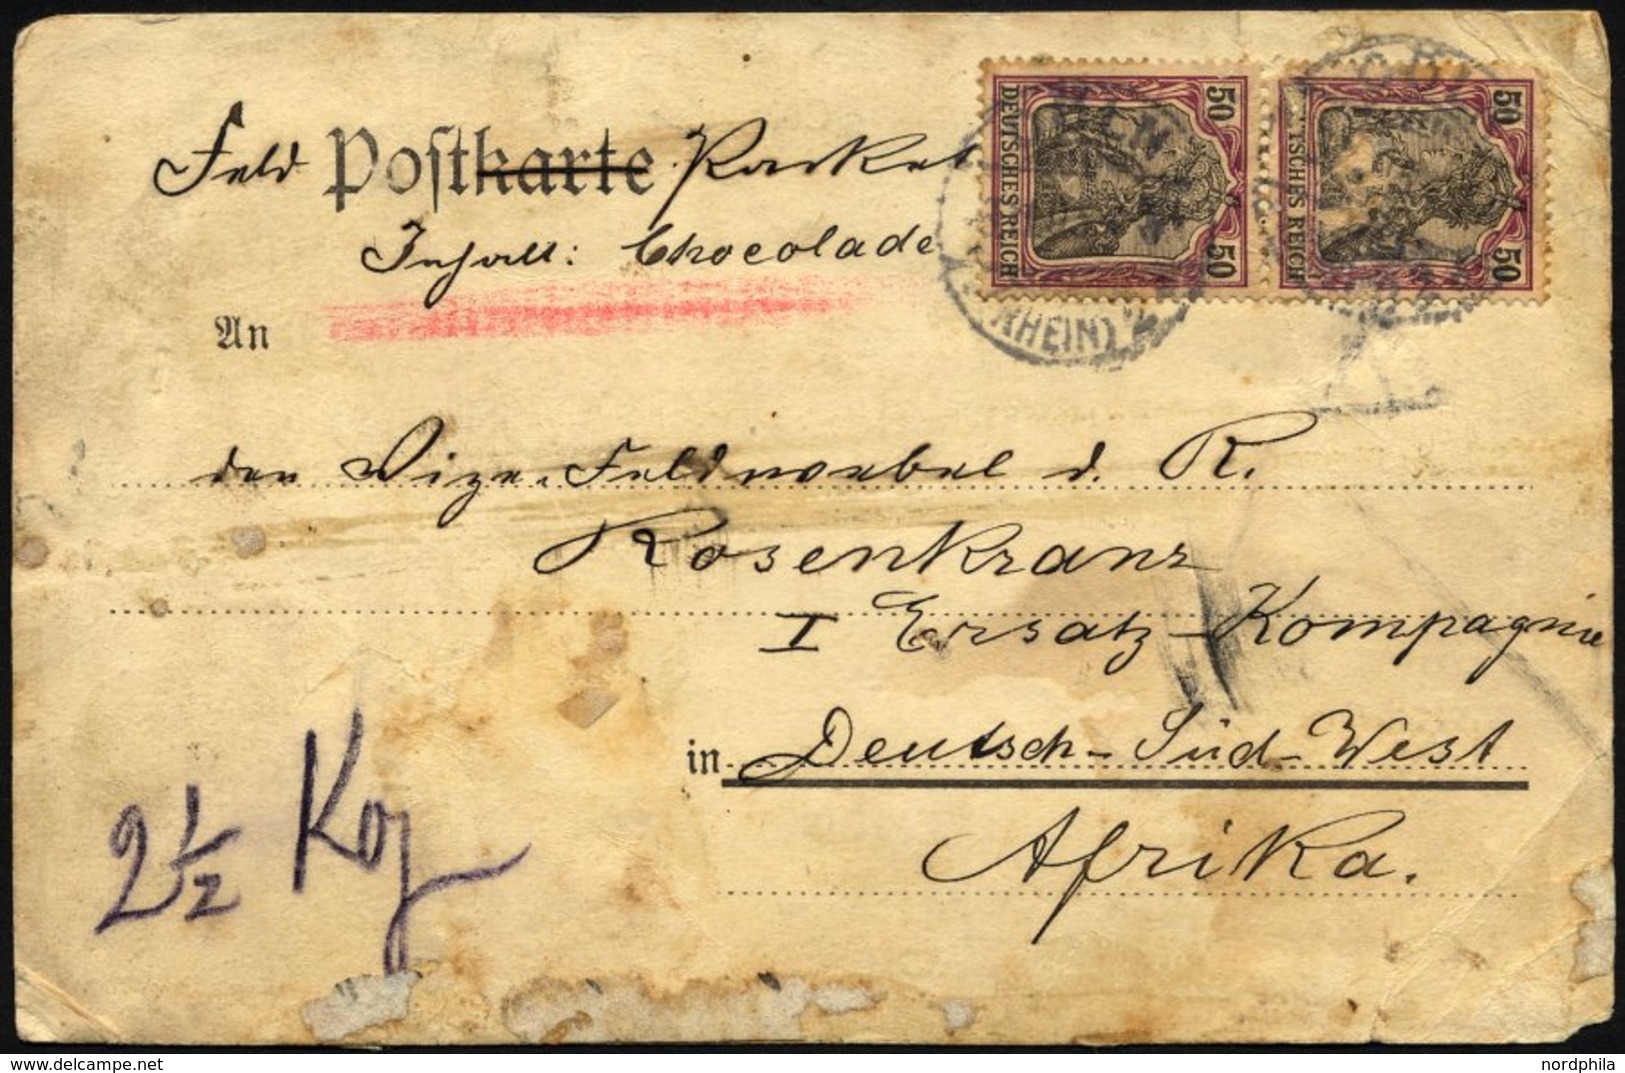 Feld Postkarte Packet
Inhalt: Chocolade
An
den Vize-Feldwebel d. R.
Rosenkranz
I Ersatz-Kompagnie
in Deutsch-Süd-West
Afrika.
2 1/2 Kg
50 DEUTSCHES REICH 50
50 DEUTSCHES REICH 50
(RHEIN)
nordphila